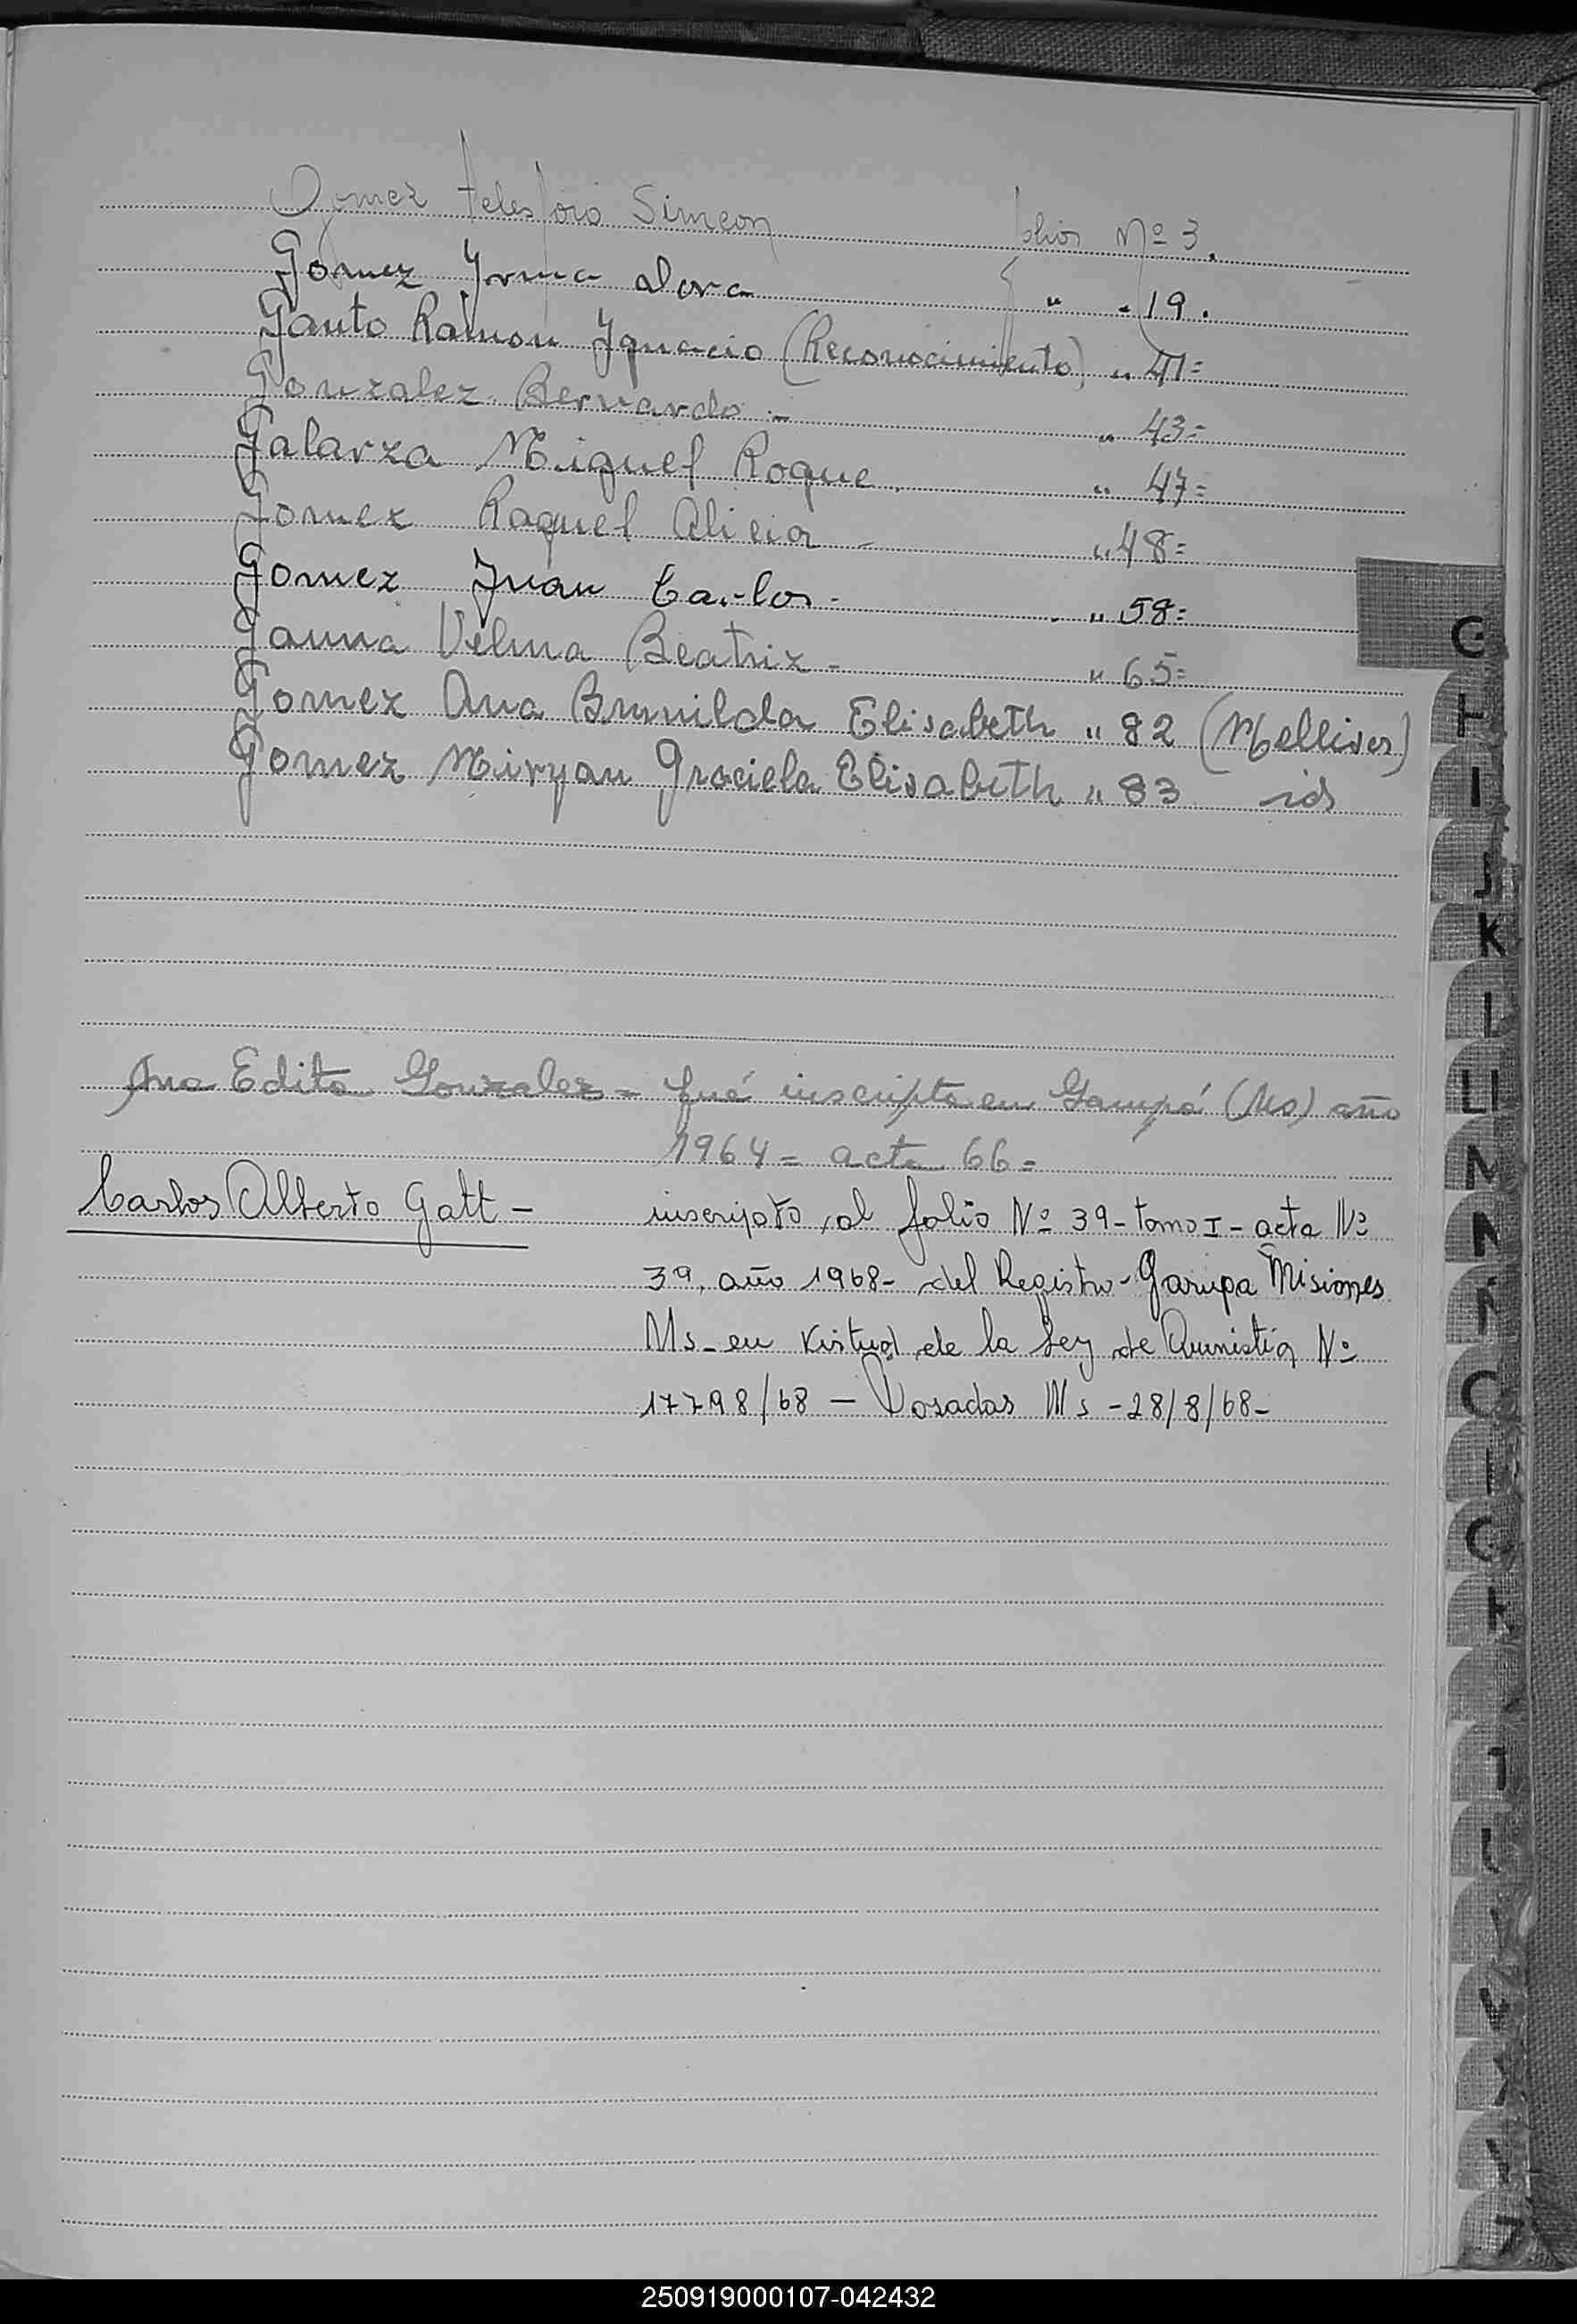 Gomez Telesforo Simeon folios Nº 3.
Gomez Yrma Dora " - 19.
Gauto Ramon Ygnacio (Reconocimiento) " 41=
Gonzalez Bernardo :- " 43=
Galarza Miguel Roque. " 47=
Gomez Raquel Alicia - " 48=
Gomez Juan Carlos - " 58=
Gauna Velma Beatriz - " 65=
Gomez Ana Brunilda Elisabeth " 82 (Mellises)
Gomez Miryan Graciela Elisabeth " 83 id
Ana Edita Gonzalez = fué inscripta en Garupá (Ms) año
1964 = acta 66 =
Carlos Alberto Gatt - inscripto, al folio Nº 39 - tomo I - acta Nº
39, año 1968 - del Registro - Garupa Misiones
Ms - en virtud de la Ley de Amnistía Nº
17798/68 — Posadas Ms - 28/8/68 -
G
I
J
K
L
LL
M
N
Ñ
O
Q
250919000107-042432